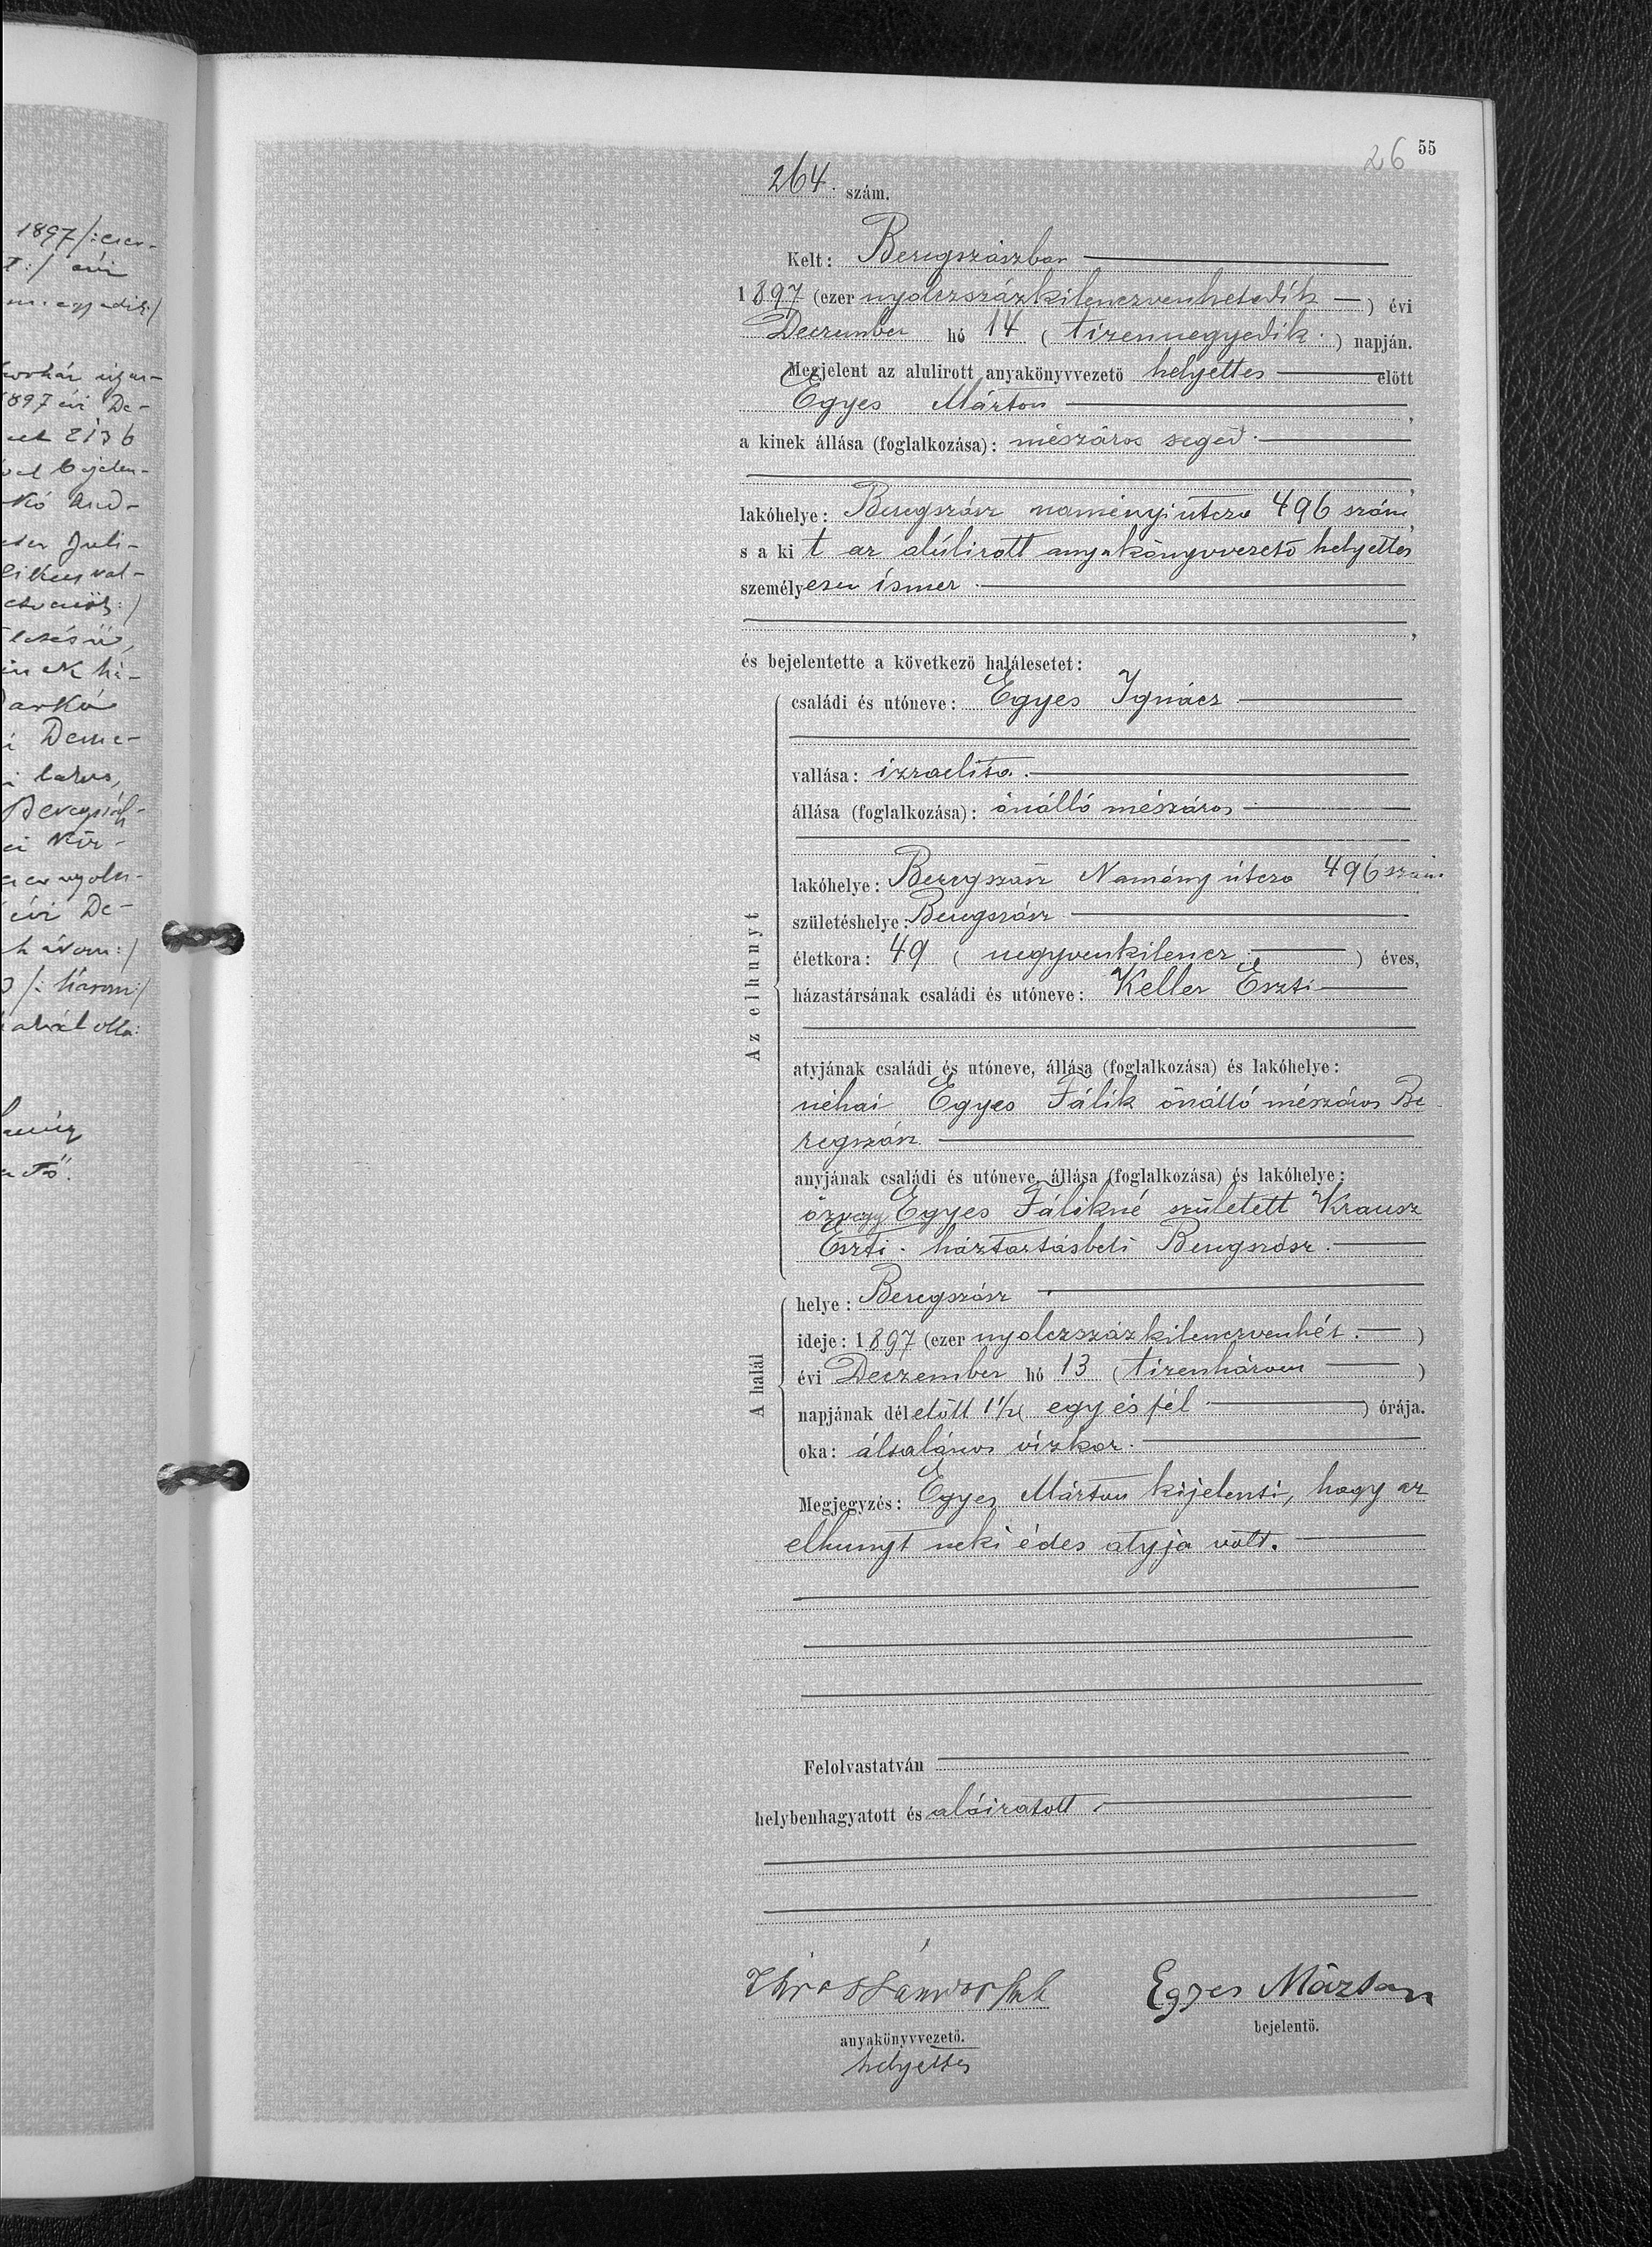 1897 /: ezer-
:/ évi
1897 évi De-
2136
bejelen-
Kó And-
Juli-
val-
Deme-
évi De-
három :/
/: három :/
55
26
264. szám.
Kelt: Beregszászban
1897 (ezer nyolczszázkilenczvenhetedik ) évi
Deczember hó 14 ( tizennegyedik ) napján.
Megjelent az alulirott anyakönyvvezető helyettes előtt
Egyes Márton ,
a kinek állása (foglalkozása): mészáros segéd
,
lakóhelye: Beregszász naményi utcza 496 szám,
s a kit az alúlirott anyakönyvvezető helyettes
személyesen ismer
,
és bejelentette a következő halálesetet:
Az elhunyt
családi és utóneve: Egyes Ignácz
vallása: izraelita.
állása (foglalkozása): önálló mészáros
lakóhelye: Beregszász Namény útcza 496 szám.
születéshelye: Beregszász
életkora: 49 ( negyvenkilencz ) éves,
házastársának családi és utóneve: Keller Eszti
atyjának családi és utóneve, állása (foglalkozása) és lakóhelye:
néhai Egyes Fálik önálló mészáros Be-
regszász.
anyjának családi és utóneve, állása (foglalkozása) és lakóhelye:
özvegy Egyes Fálikné született Krausz
Eszti. háztartásbeli Beregszász.
A halál
helye: Beregszász
ideje: 1897 (ezer nyolczszázkilenczvenhét. )
évi Deczember hó 13 ( tizenhárom )
napjának délelőtt 1½ ( egy és fél ) órája.
oka: általános vízkor.
Megjegyzés: Egyes Márton kijelenti, hogy az
elhunyt neki édes atyja volt.
Felolvastatván
helybenhagyatott és aláiratott
Egyes Márton
anyakönyvvezető.
bejelentő.
helyettes